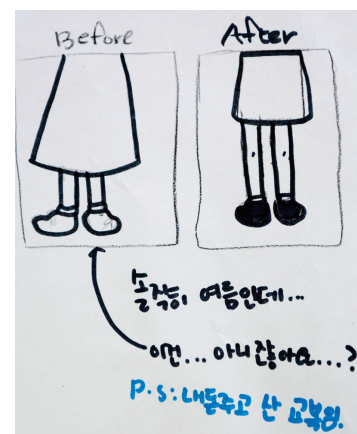 Before
After
솔직히 여름인데...
이건... 아니잖아요...?
P.S: 내돈주고 산 교복임.